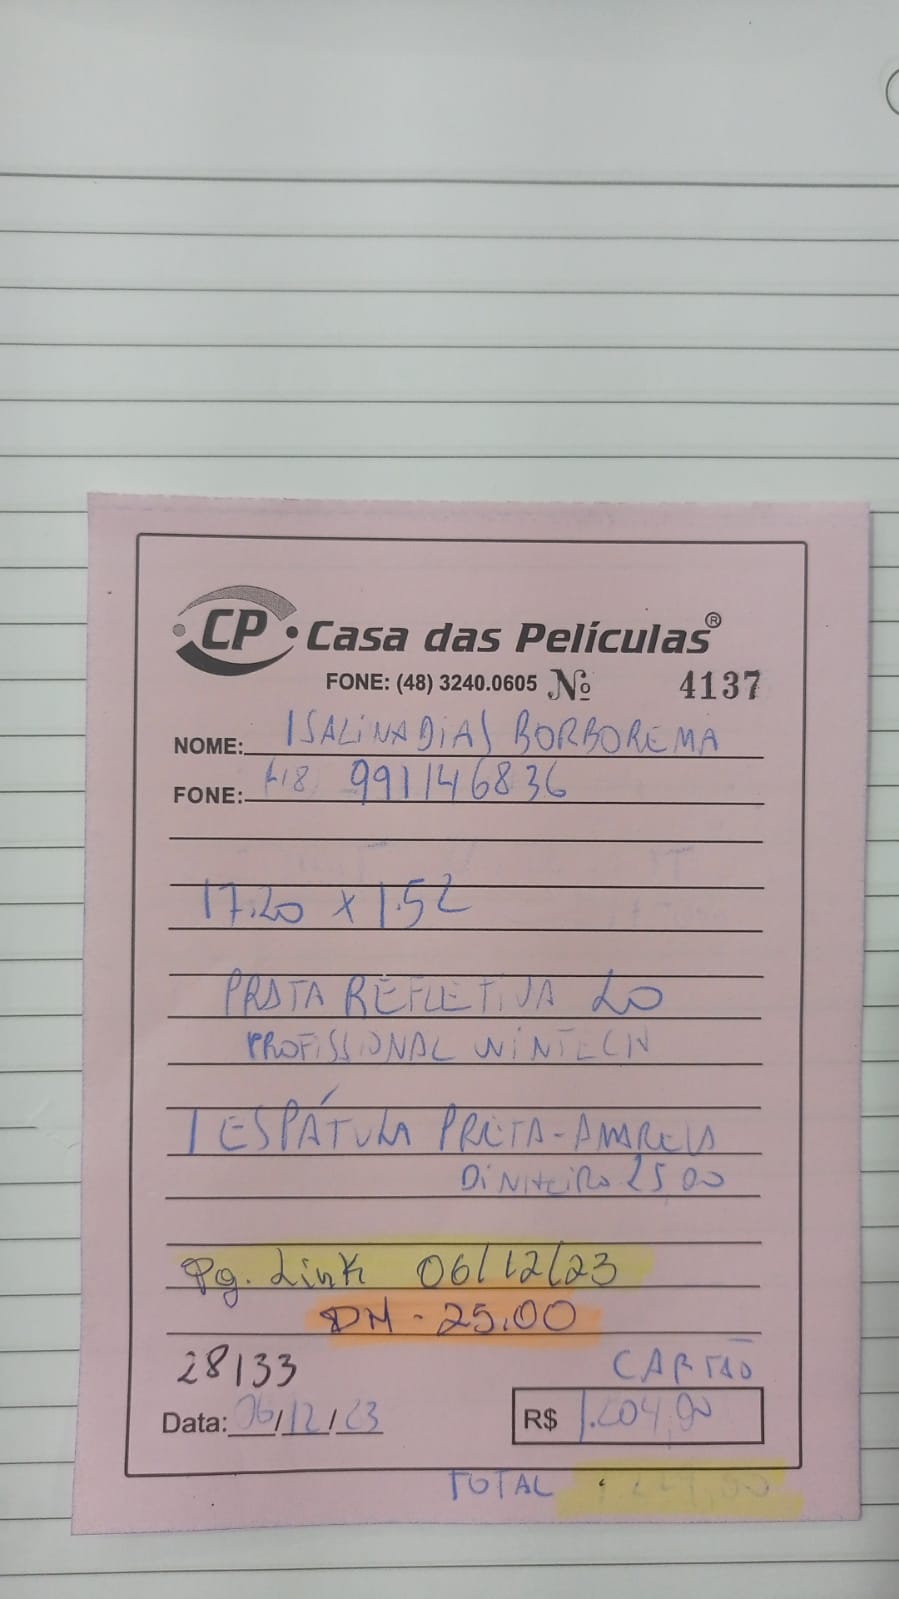 CP Casa das Películas®
FONE: (48) 3240.0605 Nº 4137
NOME: ISALINA DIAS BORBOREMA
FONE: 48 991146836
17.20 x 1.52
PRATA REFLETIVA 20
PROFISSIONAL WINTECH
1 ESPÁTULA PRETA-AMARELA
DINHEIRO 25,00
Pg. Link 06/12/23
DM - 25,00
28133
CARTÃO
Data: 06/12/23
R$ 1.204,00
TOTAL